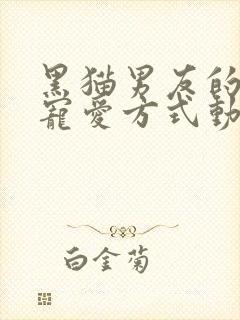 黑猫男友的
寵愛方式動
白金菊